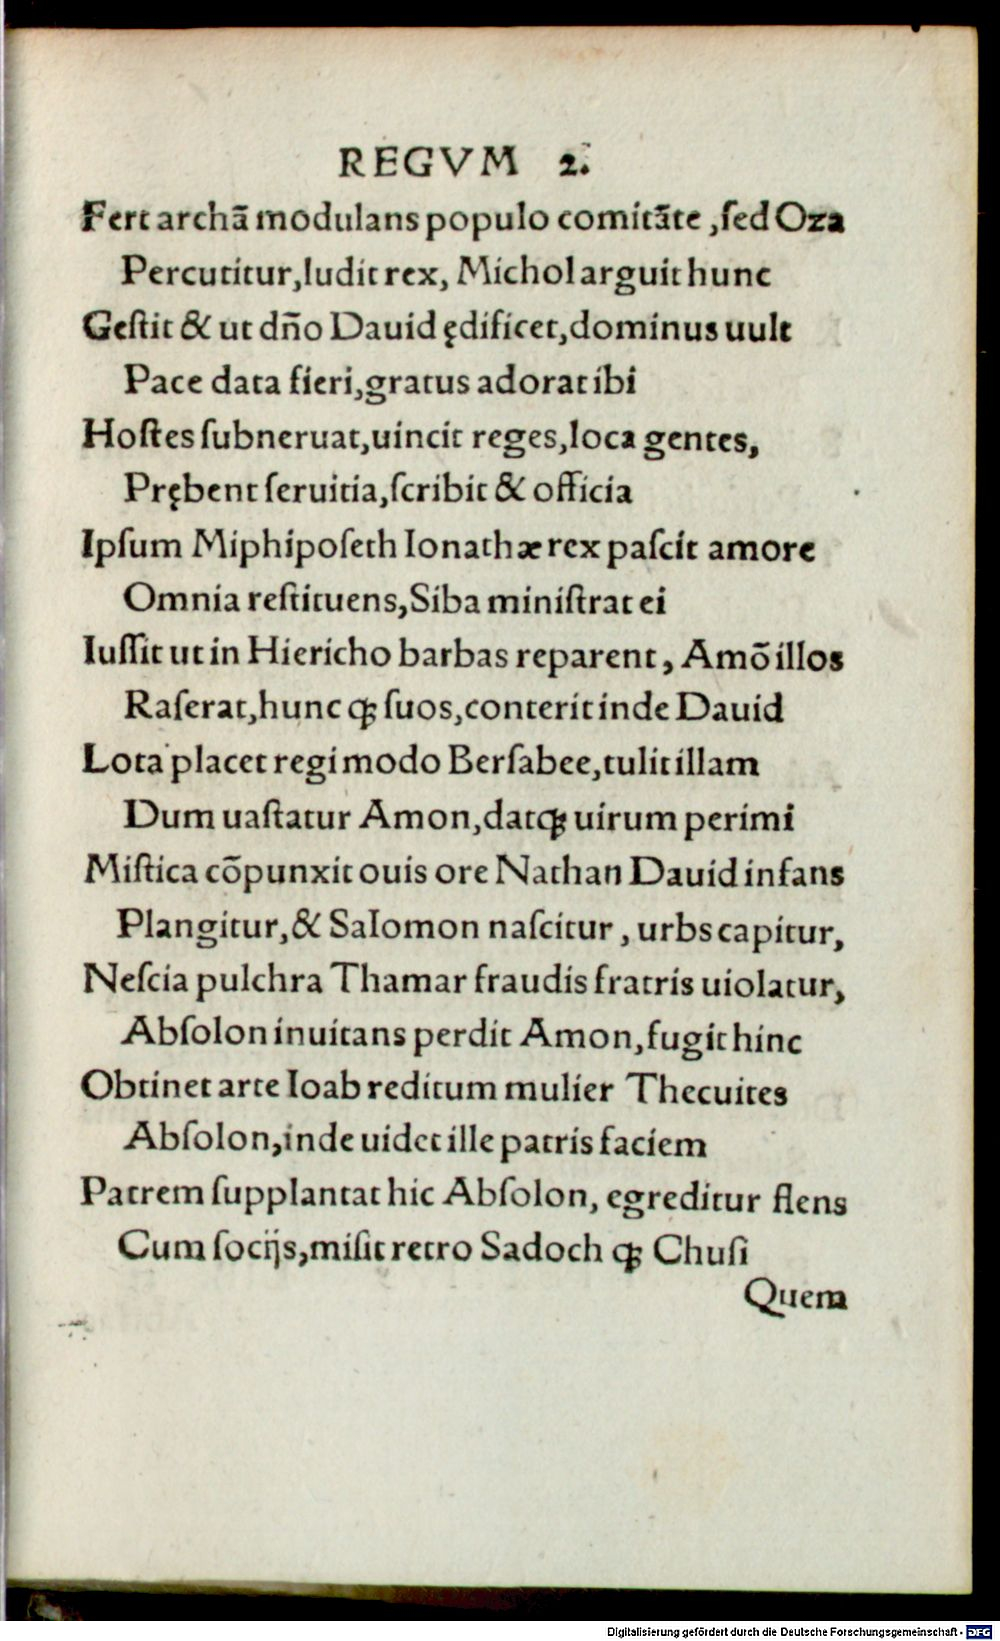 REGVM 2.
Fert archā modulans populo comitāte ,ſed Oza
Percutitur,ludit rex, Michol arguit hunc
Geſtit & ut dn̄o Dauid ędificet,dominus uult
Pace data fieri,gratus adorat ibi
Hoſtes ſubneruat,uincit reges,loca gentes,
Prębent ſeruitia,ſcribit & officia
Ipſum Miphipoſeth Ionathæ rex paſcit amore
Omnia reſtituens,Siba miniſtrat ei
Iuſſit ut in Hiericho barbas reparent, Amō illos
Raſerat,hunc qꝫ ſuos,conterit inde Dauid
Lota placet regi modo Berſabee,tulit illam
Dum uaſtatur Amon,datqꝫ uirum perimi
Miſtica cōpunxit ouis ore Nathan Dauid infans
Plangitur,& Salomon naſcitur , urbs capitur,
Neſcia pulchra Thamar fraudis fratris uiolatur,
Abſolon inuitans perdit Amon,fugit hinc
Obtinet arte Ioab reditum mulier Thecuites
Abſolon,inde uidet ille patris faciem
Patrem ſupplantat hic Abſolon, egreditur flens
Cum ſocijs,miſit retro Sadoch qꝫ Chuſi
Quem
Digitalisierung gefördert durch die Deutsche Forschungsgemeinschaft - DFG